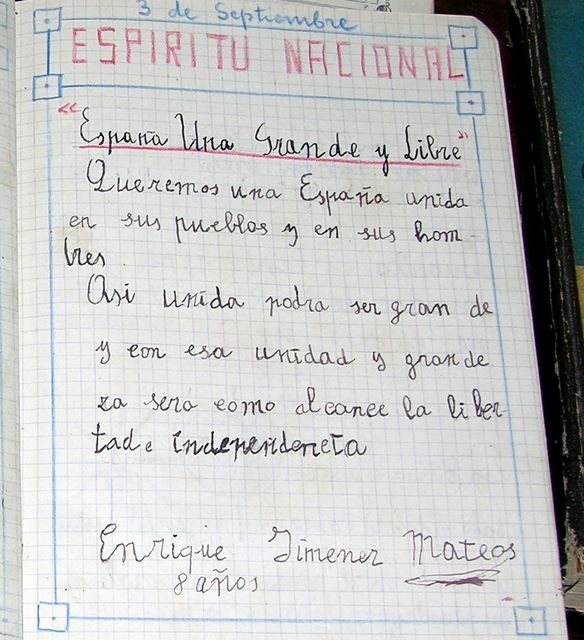 3 de Septiembre
ESPIRITU NACIONAL
"España Una Grande y Libre"
Queremos una España unida
en sus pueblos y en sus hom-
bres.
Asi unida podra ser gran de
y con esa unidad y grande
za sera como alcance la liber-
tad e independencia
Enrique Jimenez Mateos
8 años